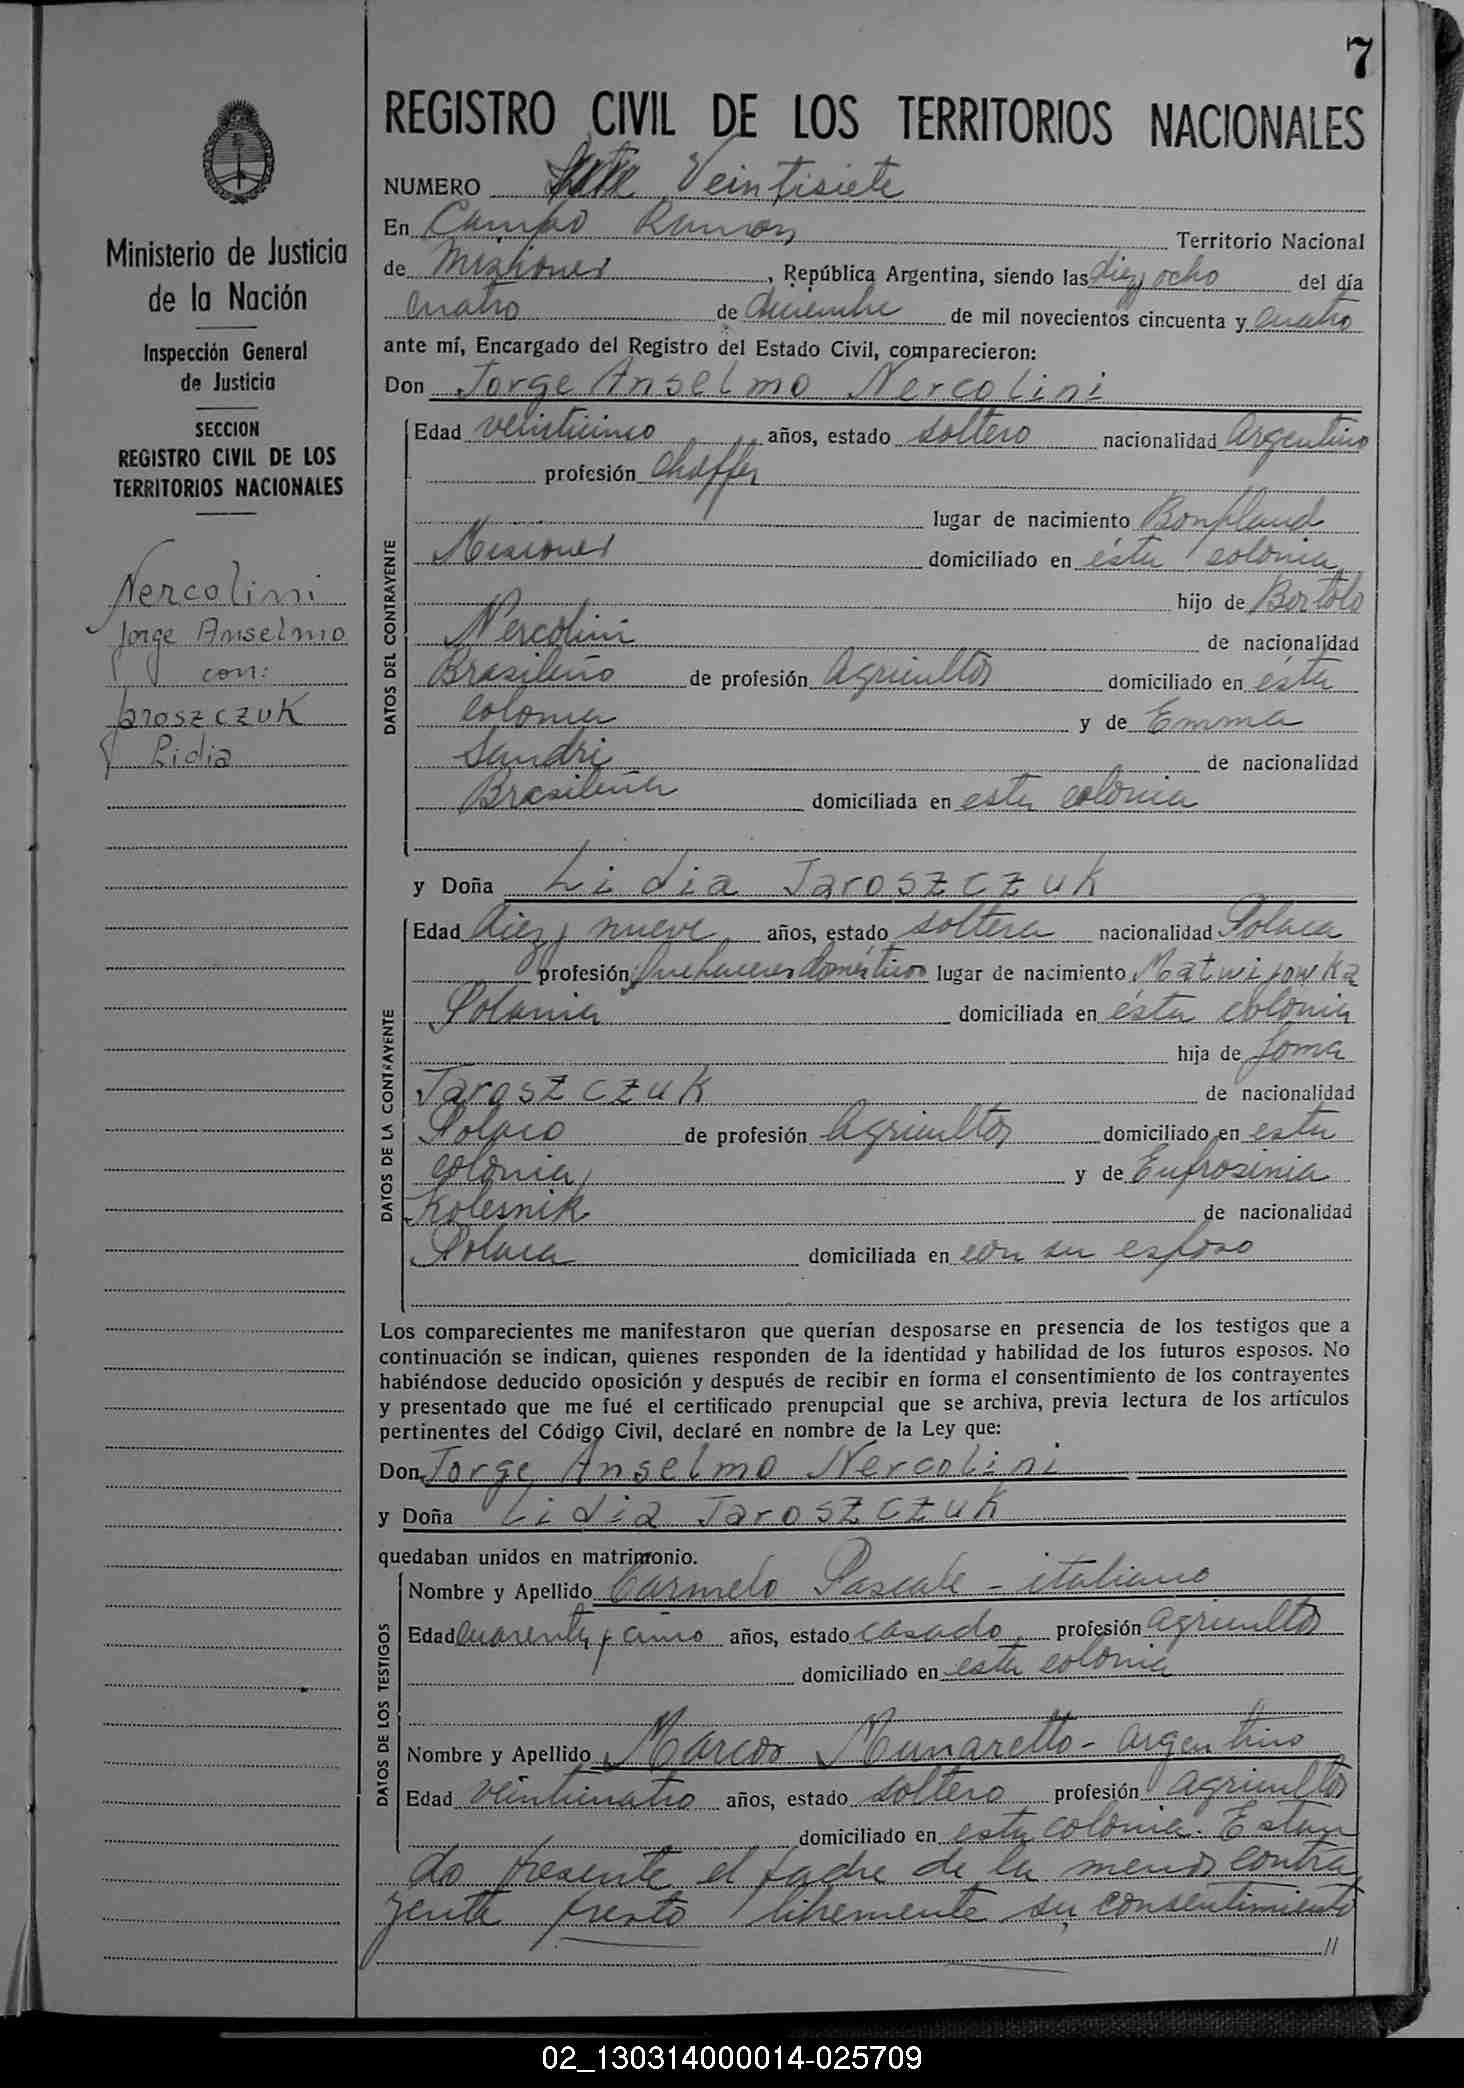 7
REGISTRO CIVIL DE LOS TERRITORIOS NACIONALES
Ministerio de Justicia
de la Nación
Inspección General
de Justicia
SECCION
REGISTRO CIVIL DE LOS
TERRITORIOS NACIONALES
Nercolini
Jorge Anselmo
con:
Jaroszczuk
Lidia
NUMERO Veintisiete
En Campo Ramon Territorio Nacional
de Misiones, República Argentina, siendo las diez y ocho del día
cuatro de diciembre de mil novecientos cincuenta y cuatro
ante mí, Encargado del Registro del Estado Civil, comparecieron:
Don Jorge Anselmo Nercolini
DATOS DEL CONTRAYENTE
Edad veinticinco años, estado soltero nacionalidad Argentino
profesión choffer
lugar de nacimiento Bonpland
Misiones domiciliado en ésta colonia
hijo de Bortolo
Nercolini de nacionalidad
Brasileño de profesión Agricultor domiciliado en ésta
colonia y de Emma
Sandri de nacionalidad
Brasileña domiciliada en esta colonia
y Doña Lidia Jaroszczuk
DATOS DE LA CONTRAYENTE
Edad diez y nueve años, estado soltera nacionalidad Polaca
profesión Quehaceres domésticos lugar de nacimiento Matwijowka
Polonia domiciliada en ésta colonia
hija de Joma
Jaroszczuk de nacionalidad
Polaco de profesión Agricultor domiciliado en esta
colonia y de Eufrosinia
Kolesnik de nacionalidad
Polaca domiciliada en con su esposo
Los comparecientes me manifestaron que querían desposarse en presencia de los testigos que a
continuación se indican, quienes responden de la identidad y habilidad de los futuros esposos. No
habiéndose deducido oposición y después de recibir en forma el consentimiento de los contrayentes
y presentado que me fué el certificado prenupcial que se archiva, previa lectura de los artículos
pertinentes del Código Civil, declaré en nombre de la Ley que:
Don Jorge Anselmo Nercolini
y Doña Lidia Jaroszczuk
quedaban unidos en matrimonio.
DATOS DE LOS TESTIGOS
Nombre y Apellido Carmelo Pascale - italiano
Edad cuarenta y cinco años, estado casado profesión agricultor
domiciliado en esta colonia
Nombre y Apellido Marcos Munaretto - argentino
Edad veinticuatro años, estado soltero profesión agricultor
domiciliado en esta colonia. Estan
do presente el padre de la menor contra
yente presto libremente su consentimiento
//
02_130314000014-025709